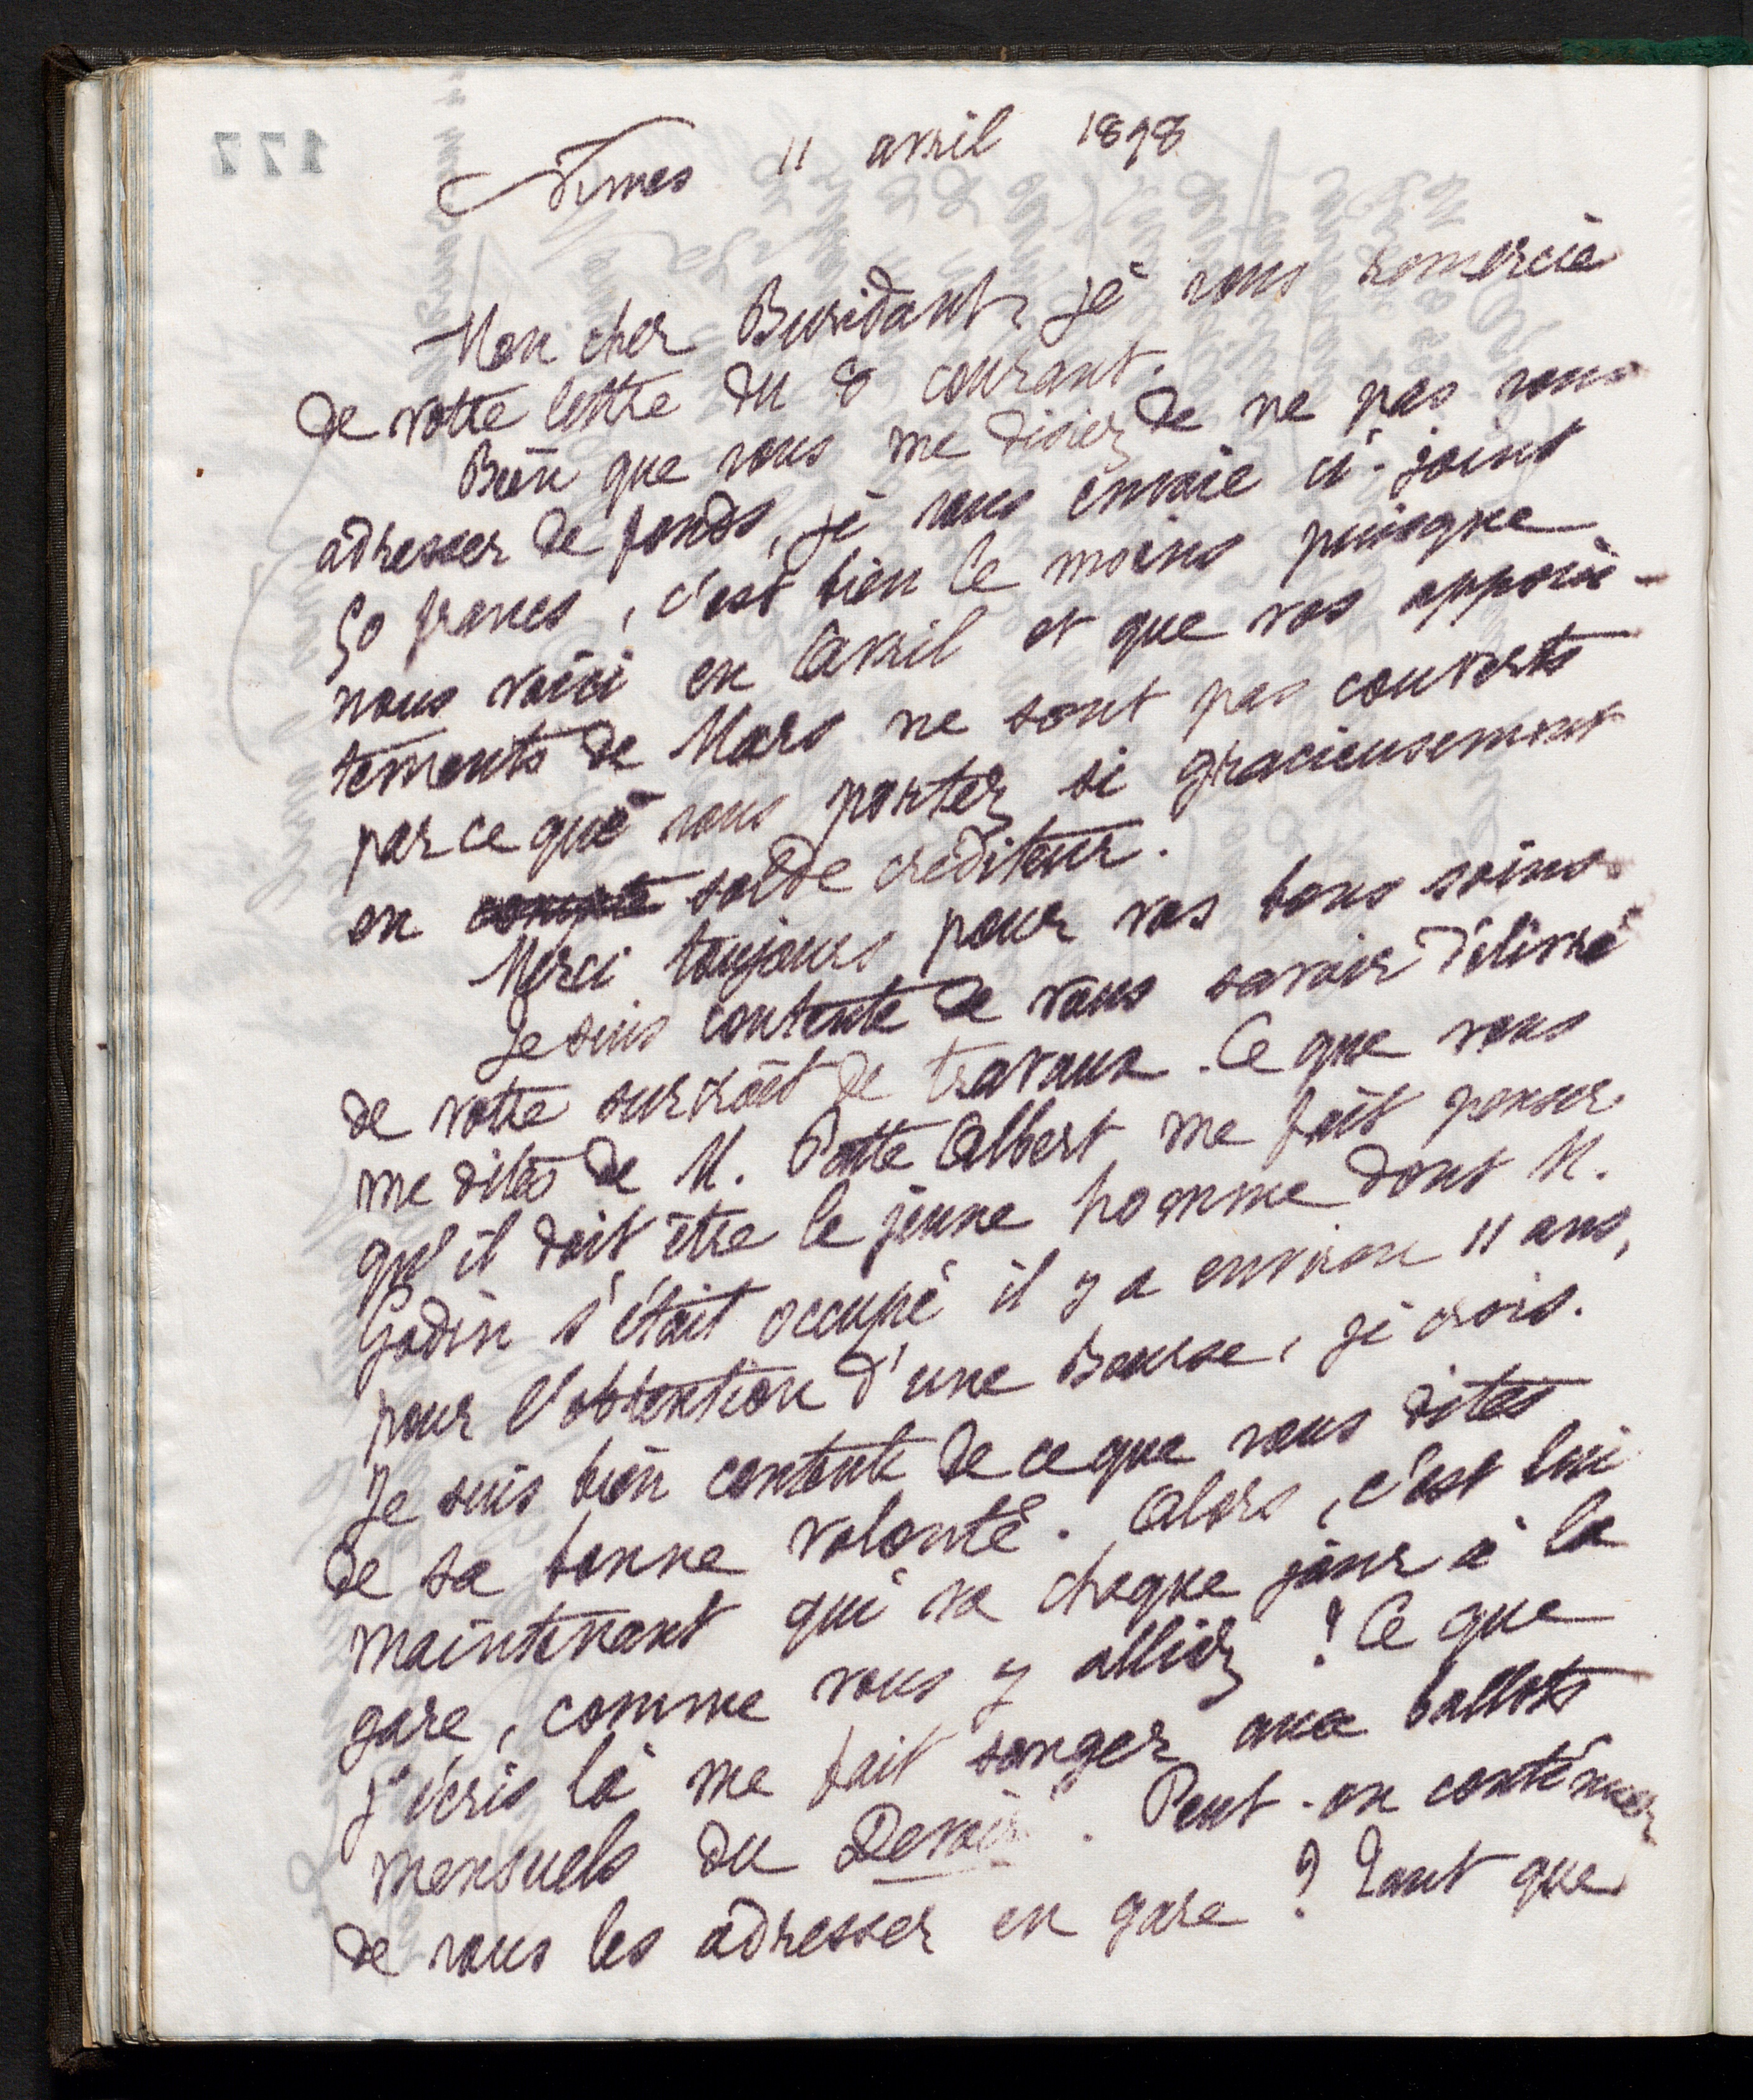 177
Nîmes 11 avril 1898
Mon cher Buridant, je vous remercie
de votre lettre du 8 courant.
Bien que vous me disiez de ne pas vous
adresser de fonds, je vous envoie ci-joint
50 francs, c'est bien le moins puisque
nous voici en Avril et que vos appoin-
tements de Mars ne sont pas couverts
par ce que vous portez si gracieusement
en compte solde créditeur.
Merci toujours pour vos bons soins.
Je suis contente de vous savoir délivré
de votre surcroît de travaux. Ce que vous
me dites de M. Patte Albert me fait penser
qu'il doit être le jeune homme dont M.
Godin s'était occupé il y a environ 11 ans,
pour l'obtention d'une Bourse, je crois.
Je suis bien contente de ce que vous dites
de sa bonne volonté. Alors, c'est lui
maintenant qui va chaque jour à la
gare, comme vous y alliez ! Ce que
j'écris là me fait songer aux ballots
mensuels du Devoir. Peut-on continuer
de vous les adresser en gare ? Tant que